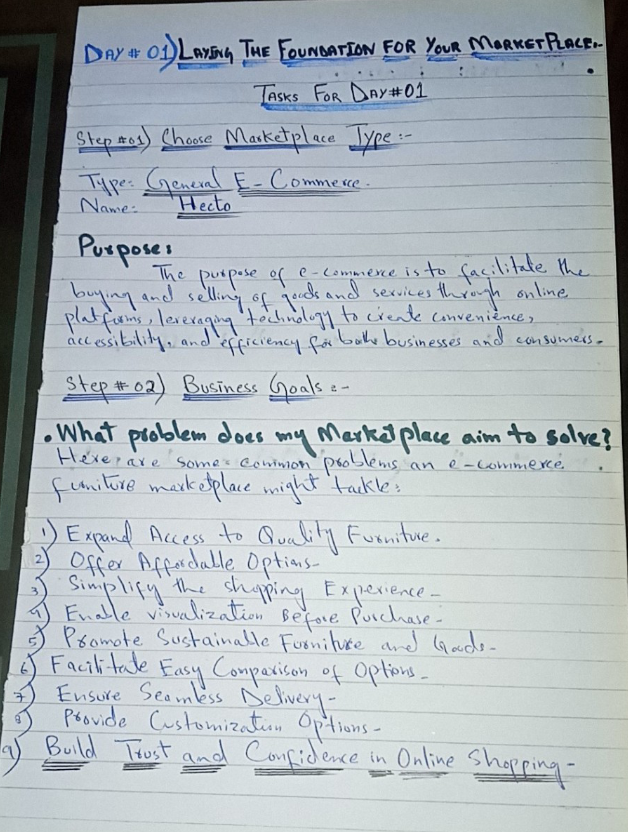 DAY # 01) LAYING THE FOUNDATION FOR YOUR MARKETPLACE:-
TASKS FOR DAY#01
Step #01) Choose Marketplace Type :-
Type: General E-Commerce.
Name: Hecto
Purpose:
The purpose of e-commerce is to facilitate the
buying and selling of goods and services through online
platforms, leveraging technology to create convenience,
accessibility, and efficiency for both businesses and consumers.
Step # 02) Business Goals :-
• What problem does my Marketplace aim to solve?
Here are some common problems an e-commerce
furniture marketplace might tackle:
1) Expand Access to Quality Furniture.
2) Offer Affordable Options-
3) Simplify the shopping Experience-
4) Enable visualization Before Purchase-
5) Promote Sustainable Furniture and Goods-
6) Facilitate Easy Comparison of Options-
7) Ensure Seamless Delivery-
8) Provide Customization Options-
9) Build Trust and Confidence in Online Shopping-